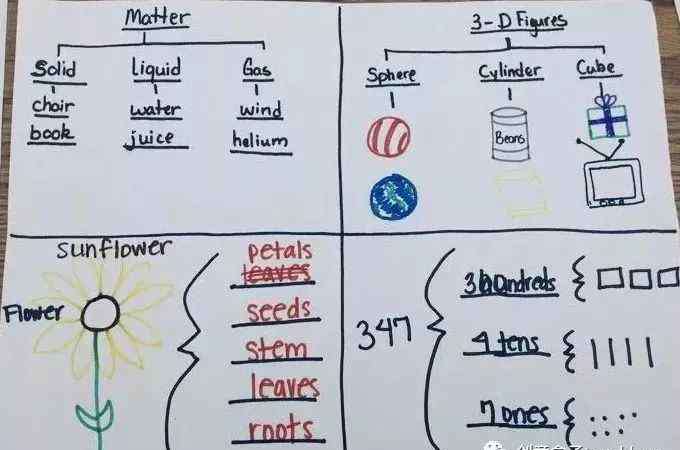 Matter
Solid Liquid Gas
chair water wind
book juice helium
3-D Figures
Sphere Cylinder Cube
Beans
sunflower
Flower
petals
leaves
seeds
stem
leaves
roots
347
3 hundreds
4 tens
7 ones